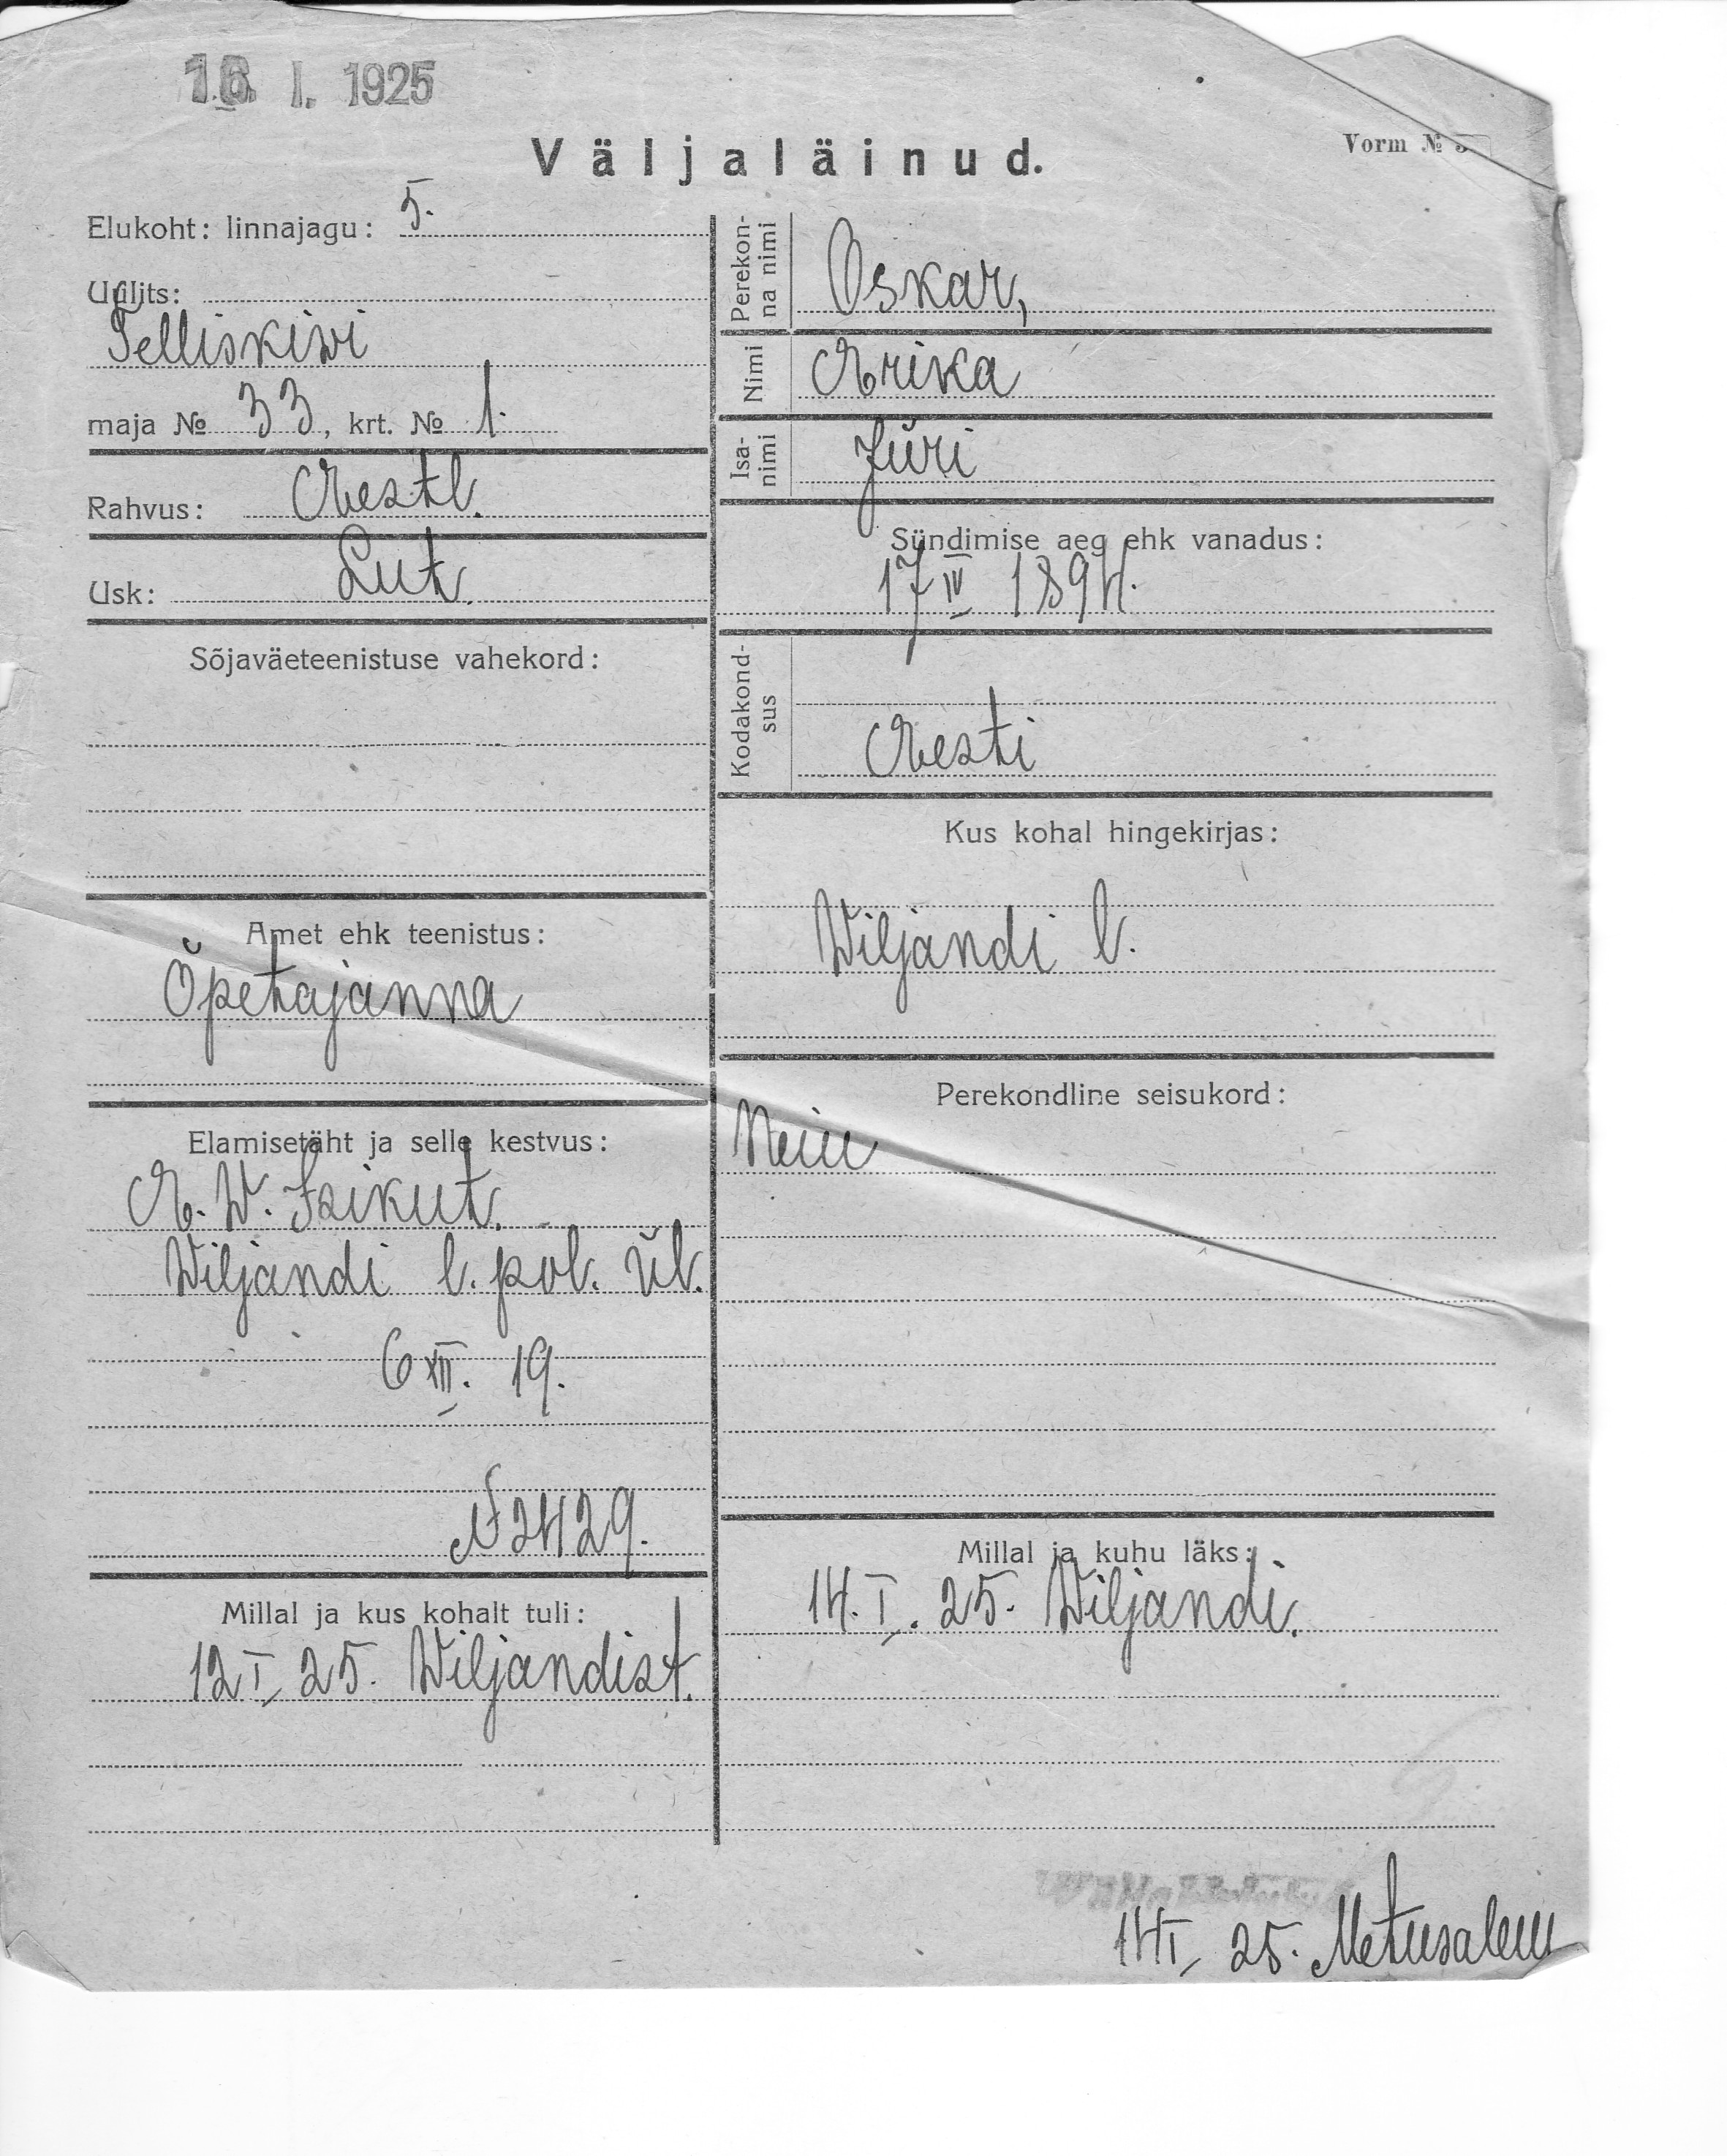 16. I. 1925
Väljaläinud.
Vorm №
Elukoht: linnajagu: 5.
Uulits:
Telliskiwi
maja № 33, krt. № 1.
Rahvus: Eestl.
Usk: Lut.
Sõjaväeteenistuse vahekord:
Amet ehk teenistus:
Õpetajanna
Elamisetäht ja selle kestvus:
E. W. Isikut.
Wiljandi l. pol. ül.
6 XII. 19.
N 2429.
Millal ja kus kohalt tuli:
12 I 25. Wiljandist.
Perekon-
na nimi
Oskar,
Nimi Erika
Isa-
nimi
Jüri
Sündimise aeg ehk vanadus:
17 IV 1894.
Kodakond-
sus
Eesti
Kus kohal hingekirjas:
Wiljandi l.
Perekondline seisukord:
Neiu
Millal ja kuhu läks:
14. I. 25. Wiljandi.
14 I 25. Metusalem